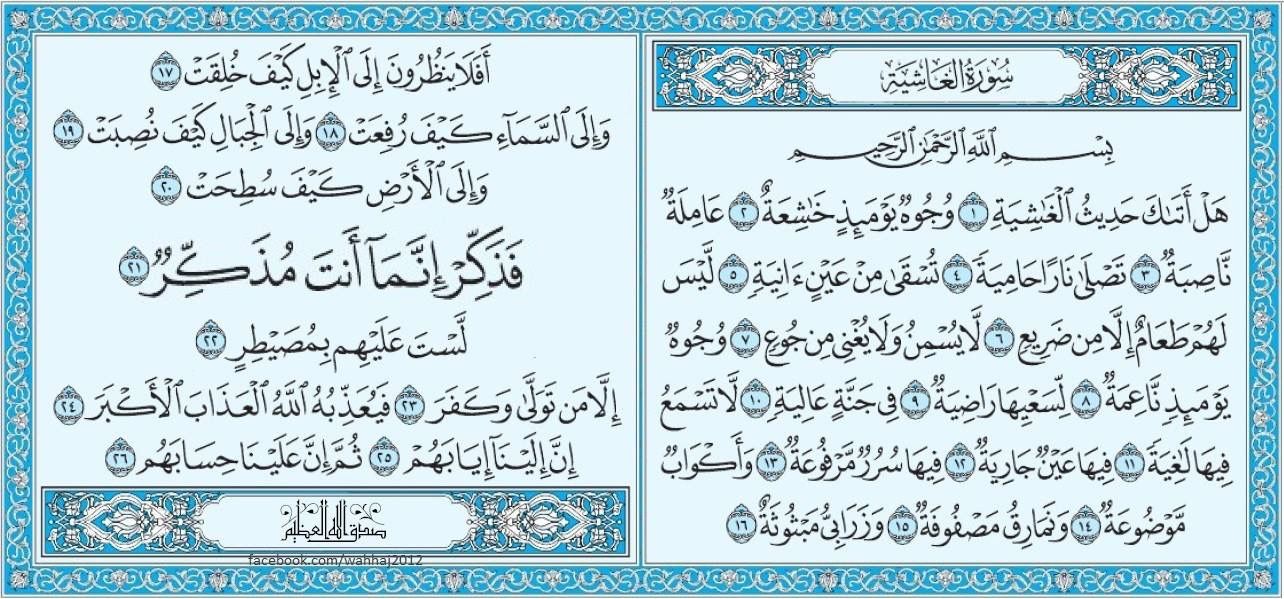 سُورَةُ الغَاشِيَةِ
بِسْمِ اللَّهِ الرَّحْمَٰنِ الرَّحِيمِ
هَلْ أَتَىٰكَ حَدِيثُ ٱلْغَٰشِيَةِ ١ وُجُوهٌ يَوْمَئِذٍ خَٰشِعَةٌ ٢ عَامِلَةٌ
نَّاصِبَةٌ ٣ تَصْلَىٰ نَارًا حَامِيَةً ٤ تُسْقَىٰ مِنْ عَيْنٍ ءَانِيَةٍ ٥ لَّيْسَ
لَهُمْ طَعَامٌ إِلَّا مِن ضَرِيعٍ ٦ لَّا يُسْمِنُ وَلَا يُغْنِى مِن جُوعٍ ٧ وُجُوهٌ
يَوْمَئِذٍ نَّاعِمَةٌ ٨ لِّسَعْيِهَا رَاضِيَةٌ ٩ فِى جَنَّةٍ عَالِيَةٍ ١٠ لَّا تَسْمَعُ
فِيهَا لَٰغِيَةً ١١ فِيهَا عَيْنٌ جَارِيَةٌ ١٢ فِيهَا سُرُرٌ مَّرْفُوعَةٌ ١٣ وَأَكْوَابٌ
مَّوْضُوعَةٌ ١٤ وَنَمَارِقُ مَصْفُوفَةٌ ١٥ وَزَرَابِىُّ مَبْثُوثَةٌ ١٦
أَفَلَا يَنظُرُونَ إِلَى ٱلْإِبِلِ كَيْفَ خُلِقَتْ ١٧
وَإِلَى ٱلسَّمَآءِ كَيْفَ رُفِعَتْ ١٨ وَإِلَى ٱلْجِبَالِ كَيْفَ نُصِبَتْ ١٩
وَإِلَى ٱلْأَرْضِ كَيْفَ سُطِحَتْ ٢٠
فَذَكِّرْ إِنَّمَآ أَنتَ مُذَكِّرٌ ٢١
لَّسْتَ عَلَيْهِم بِمُصَيْطِرٍ ٢٢
إِلَّا مَن تَوَلَّىٰ وَكَفَرَ ٢٣ فَيُعَذِّبُهُ ٱللَّهُ ٱلْعَذَابَ ٱلْأَكْبَرَ ٢٤
إِنَّ إِلَيْنَآ إِيَابَهُمْ ٢٥ ثُمَّ إِنَّ عَلَيْنَا حِسَابَهُم ٢٦
صدق الله العظيم
facebook.com/wahhaj2012